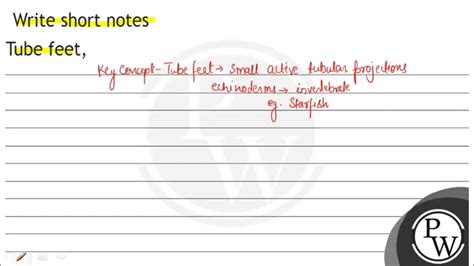 Write short notes
Tube feet,
Key Concept- Tube feet → Small active tubular projections
echinoderms → invertebrate
eg. Starfish
P
W
P
W